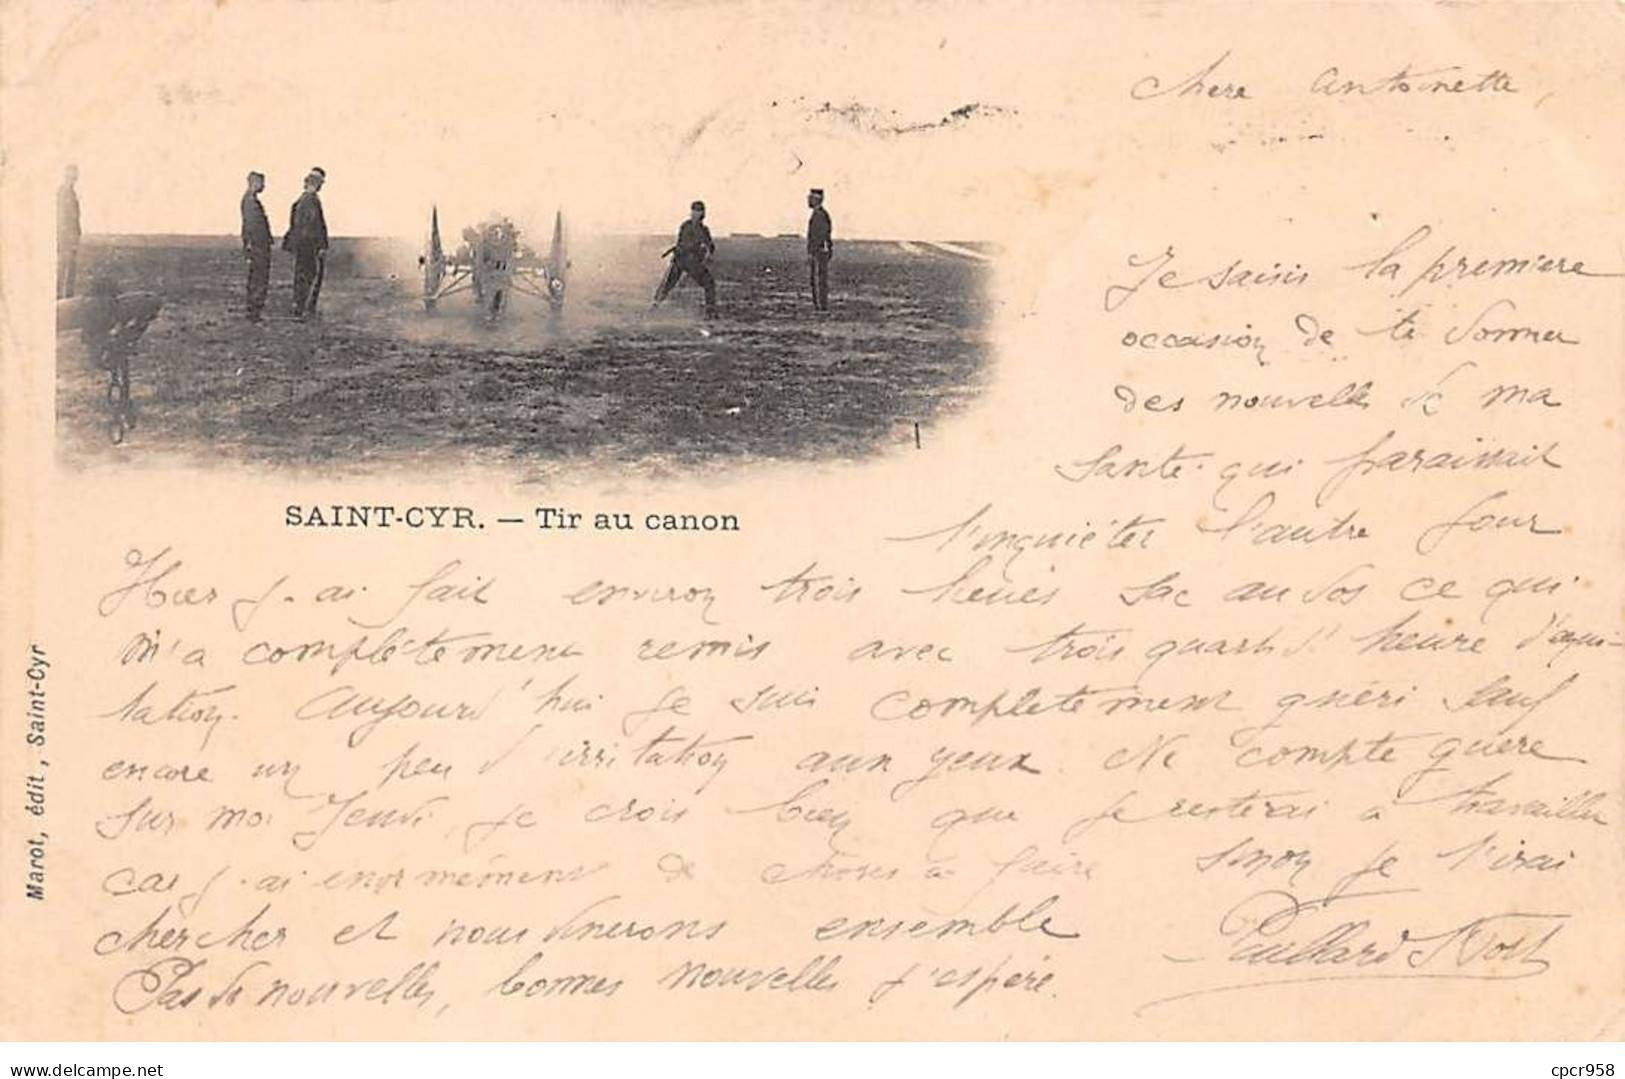 Chere Antoinette,
Je saisis la premiere
occasion de te donner
des nouvelles de ma
santé qui paraissait
t'inquiéter l'autre jour
SAINT-CYR. — Tir au canon
Hier j'ai fait environ trois heures sac au dos ce qui
m'a complètement remis avec trois quarts d'heure d'équi-
tation. Aujourd'hui je suis completement guéri sauf
encore un peu d'irritation aux yeux. Ne compte guere
sur moi Jeudi, je crois bien que je resterai à travailler
car j'ai enormément de choses à faire sinon je t'irai
chercher et nous dinerons ensemble
Pas de nouvelles, bonnes nouvelles j'espère.
Marot, édit, Saint-Cyr
delcampe.net
cpcr958